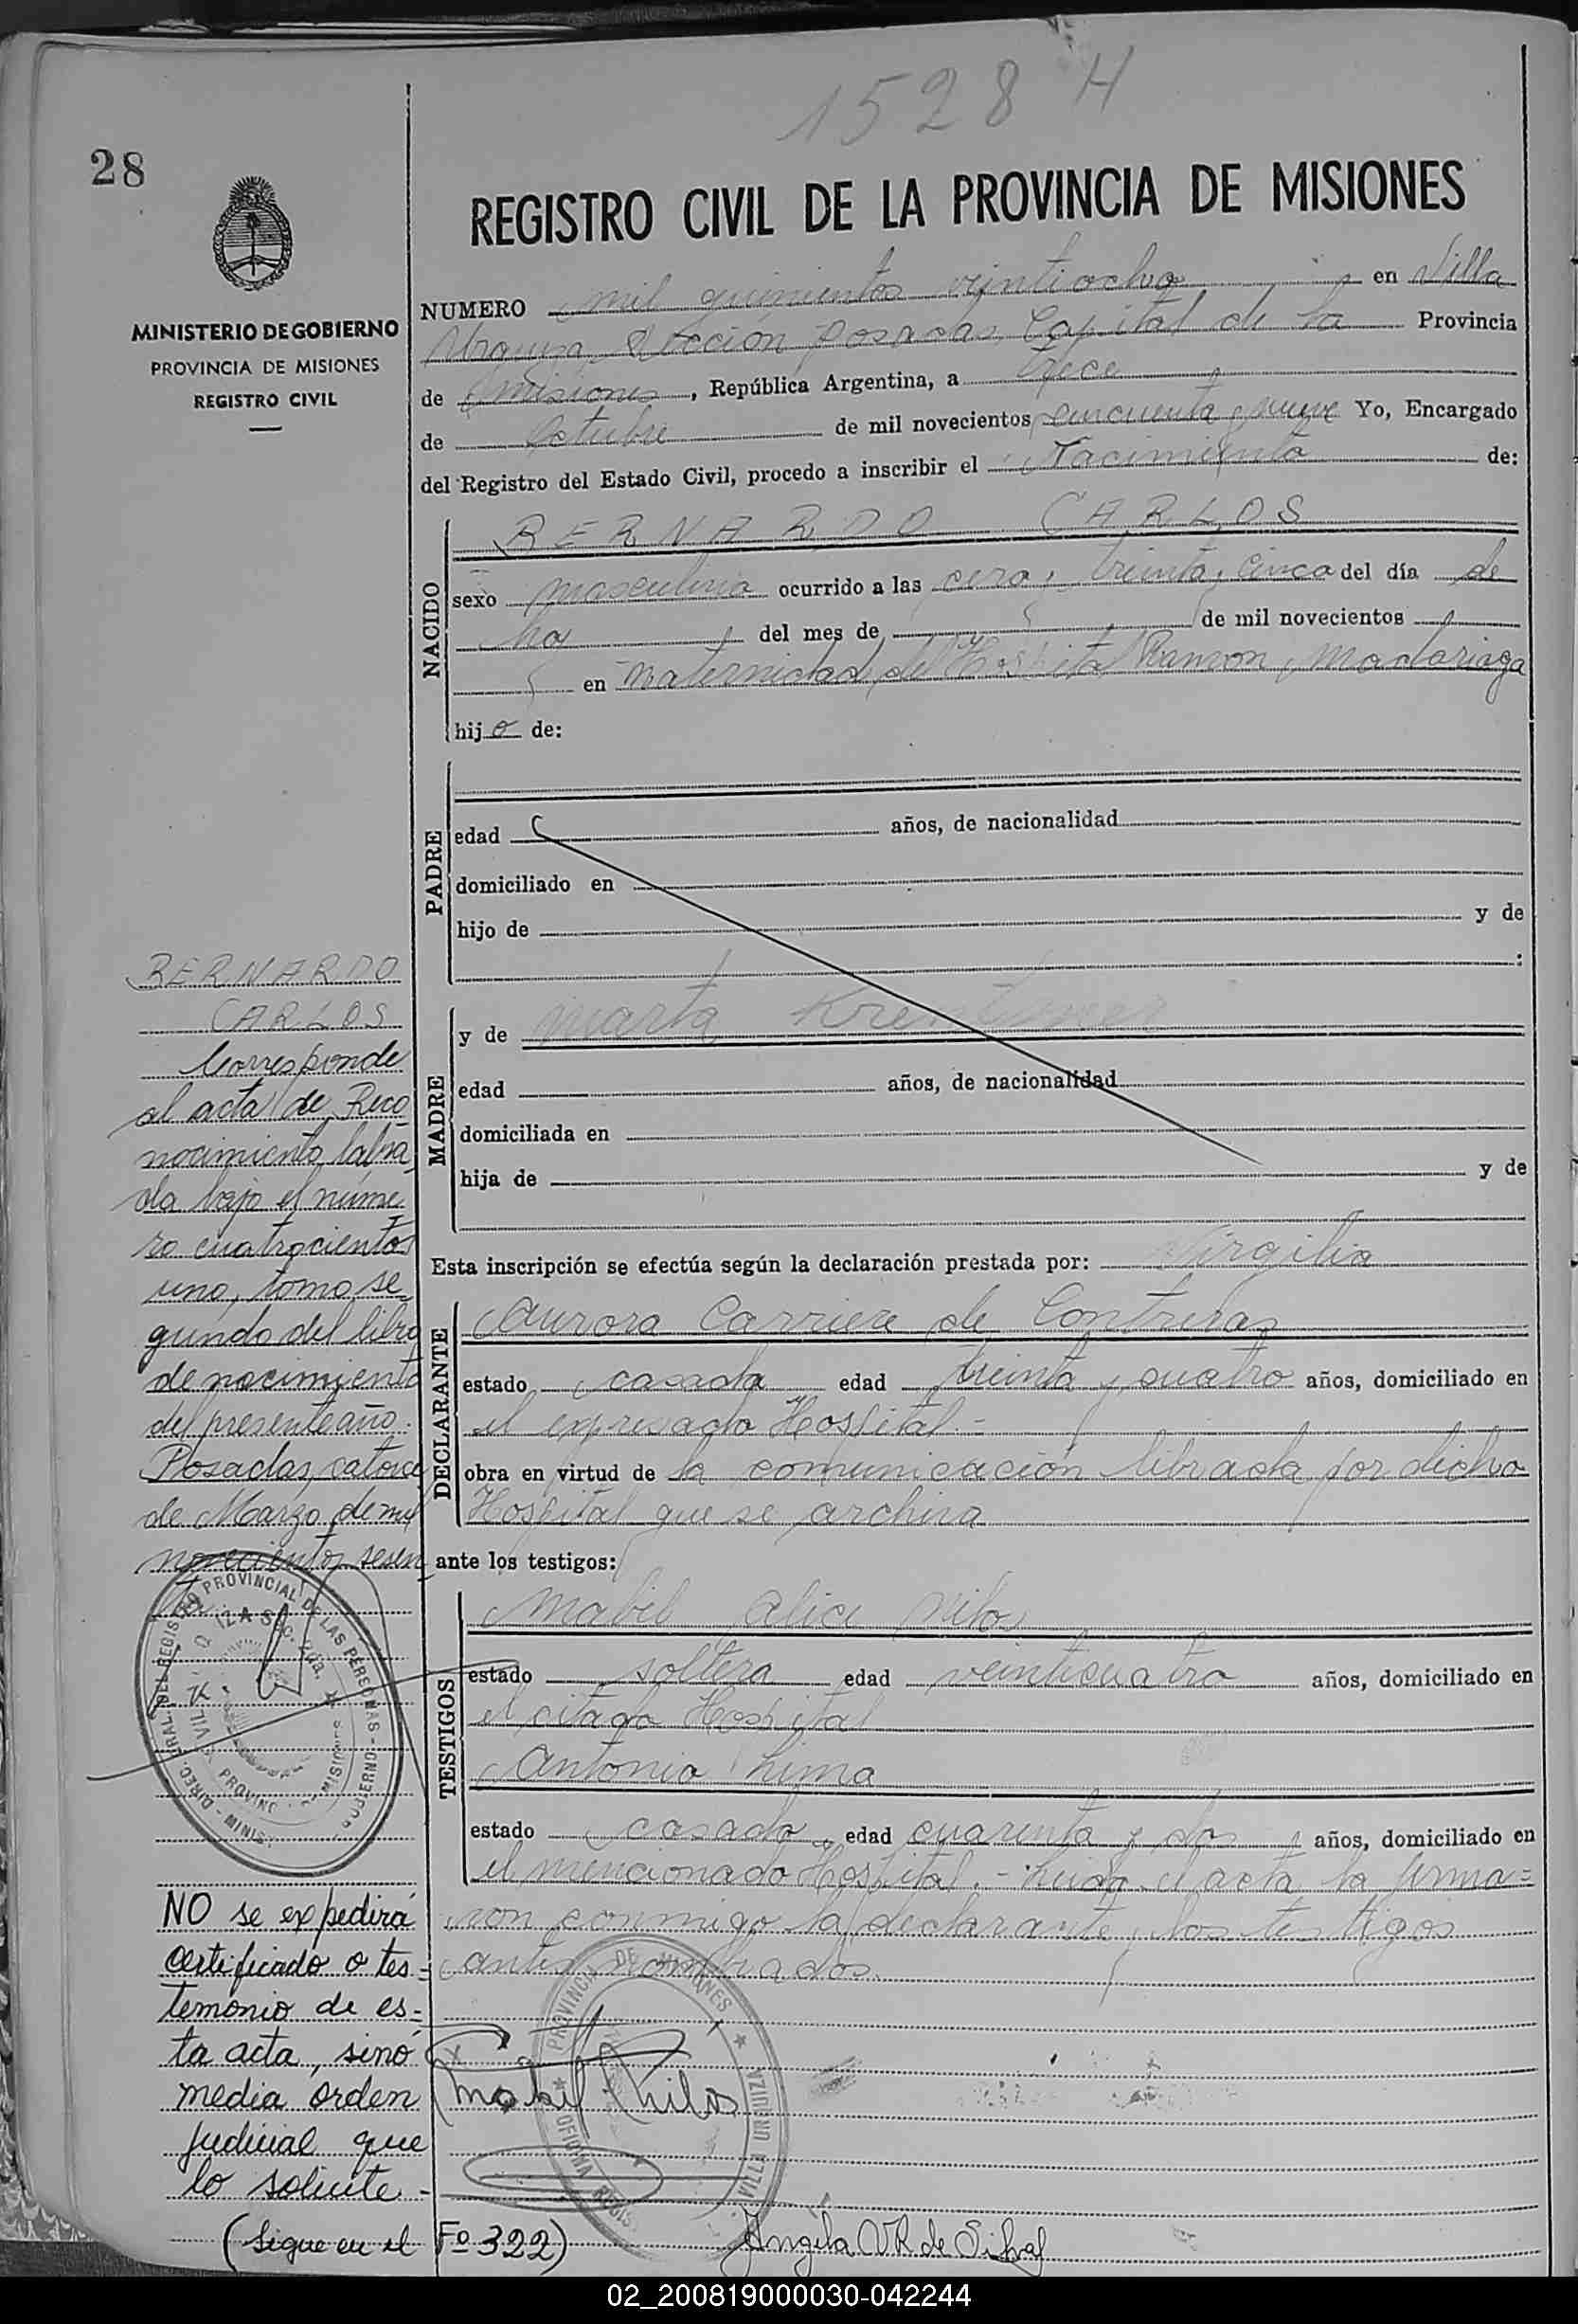 1528 H
28
REGISTRO CIVIL DE LA PROVINCIA DE MISIONES
MINISTERIO DE GOBIERNO
PROVINCIA DE MISIONES
REGISTRO CIVIL
NUMERO mil quinientos veintiocho en Villa
Urquiza Sección Posadas Capital de la Provincia
de Misiones, República Argentina, a trece
de Octubre de mil novecientos cincuenta y nueve Yo, Encargado
del Registro del Estado Civil, procedo a inscribir el Nacimiento de:
NACIDO
BERNARDO CARLOS
sexo masculino ocurrido a las cero y treinta y cinco del día de
hoy del mes de de mil novecientos
en Maternidad del Hospital Ramon Madariaga
hijo de:
PADRE
edad años, de nacionalidad
domiciliado en
hijo de y de
:
MADRE
y de Marta
edad años, de nacionalidad
domiciliada en
hija de y de
Esta inscripción se efectúa según la declaración prestada por: Virgilia
DECLARANTE
Aurora Carriere de Contreras
estado casada edad treinta y cuatro años, domiciliado en
el expresado Hospital.-
obra en virtud de la comunicación librada por dicho
Hospital que se archiva
ante los testigos:
TESTIGOS
Mabel Alice
estado soltera edad veinticuatro años, domiciliado en
el citado Hospital
Antonio Lima
estado casado edad cuarenta y dos años, domiciliado en
el mencionado Hospital.- Leida el acta la firma=
ron conmigo la declarante y los testigos
antes nombrados.
BERNARDO
CARLOS
Corresponde
al acta de Reco
nocimiento labra
da bajo el núme
ro cuatrocientos
uno, tomo se
gundo del libro
de nacimiento
del presente año.
Posadas, catorce
de Marzo de mil
novecientos sesen
ta
NO se expedirá
certificado o tes=
temonio de es=
ta acta, sinó
media órden
judicial que
lo solicite -
(Sigue en el Fº 322)
PROVINCIA DE MISIONES ★ VILLA URQUIZA
OFICINA REGIS
Mabel
Angela V R de
02_200819000030-042244